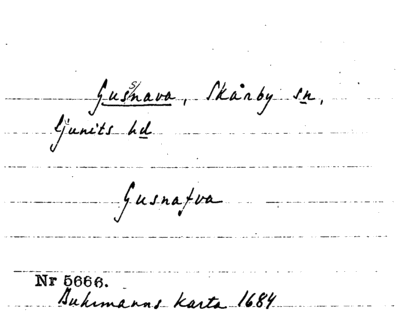 Gussnava, Skårby sn,
Ljunits hd
Gusnafva
Nr 5666.
Buhrmanns karta 1684